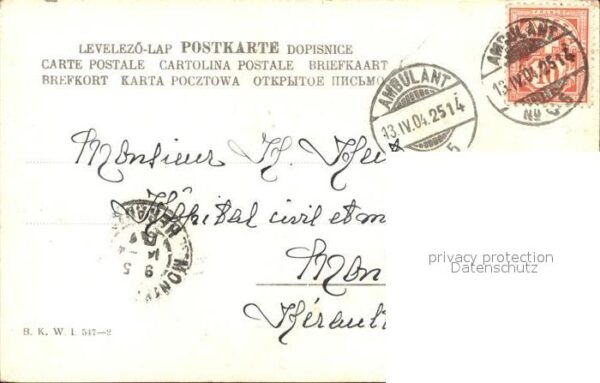 LEVELEZŐ-LAP POSTKARTE DOPISNICE
CARTE POSTALE CARTOLINA POSTALE BRIEFKAART
BREFKORT KARTA POCZTOWA ОТКРЫТОЕ ПИСЬМО
FRANCO
AMBULANT
13.IV.04.25 14
No
AMBULANT
13.IV.04.25 14
Monsieur H.
Hôpital civil et m
Mon
Hérault
MONT
HERAU
9 5
14 -4
04
privacy protection
Datenschutz
B. K. W. I. 547-2